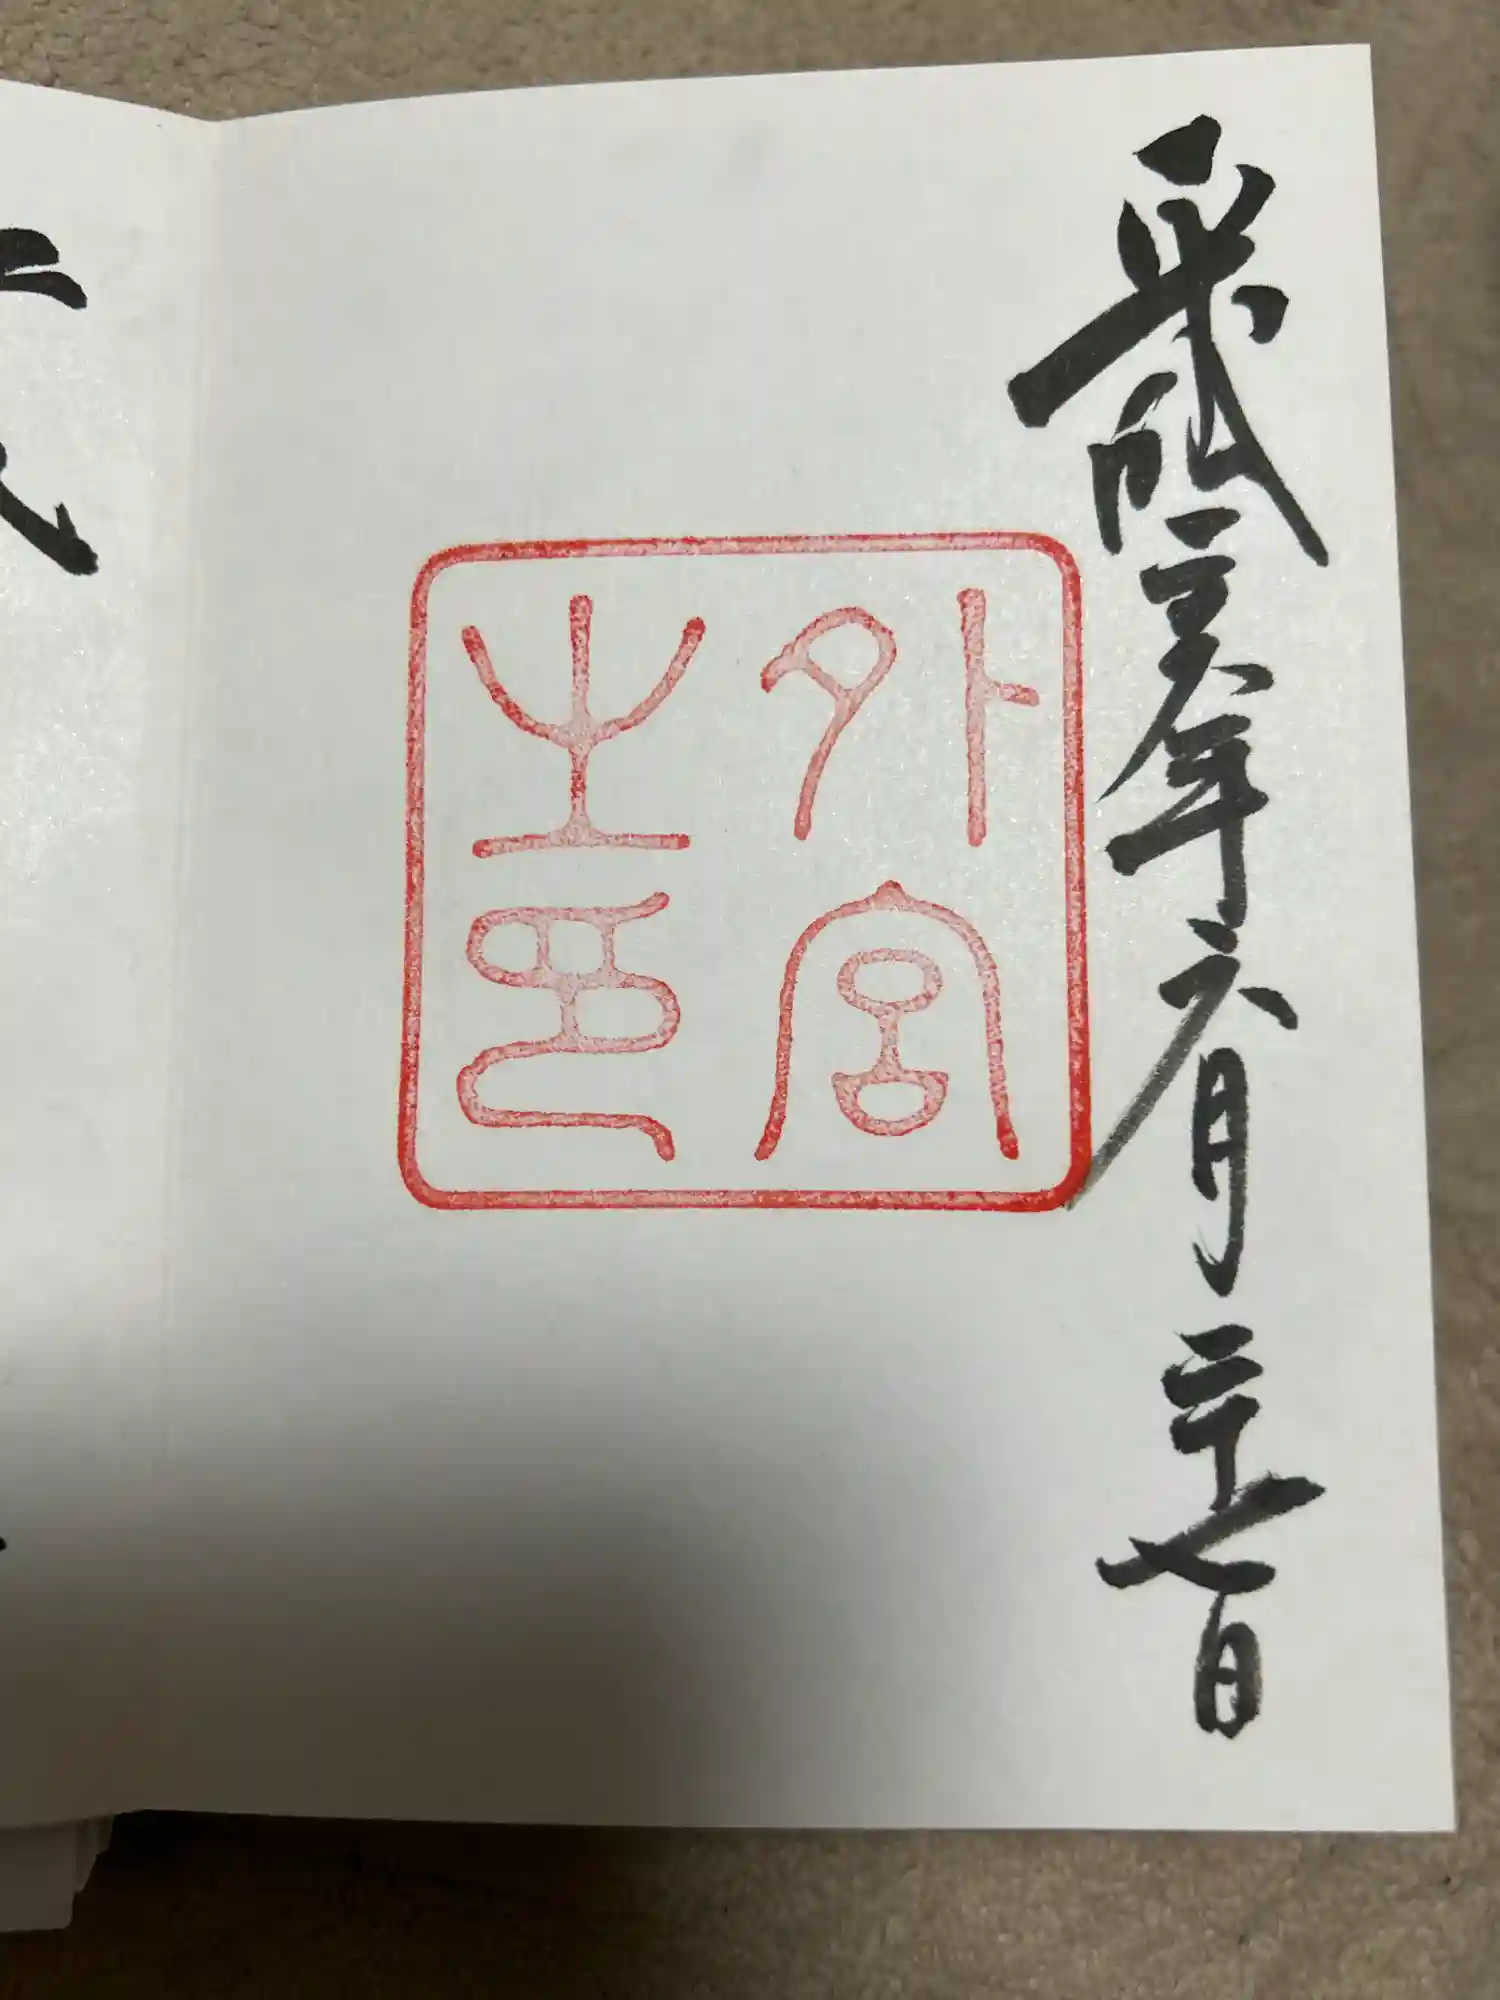 平成二十六年六月二十七日
外宮
之印